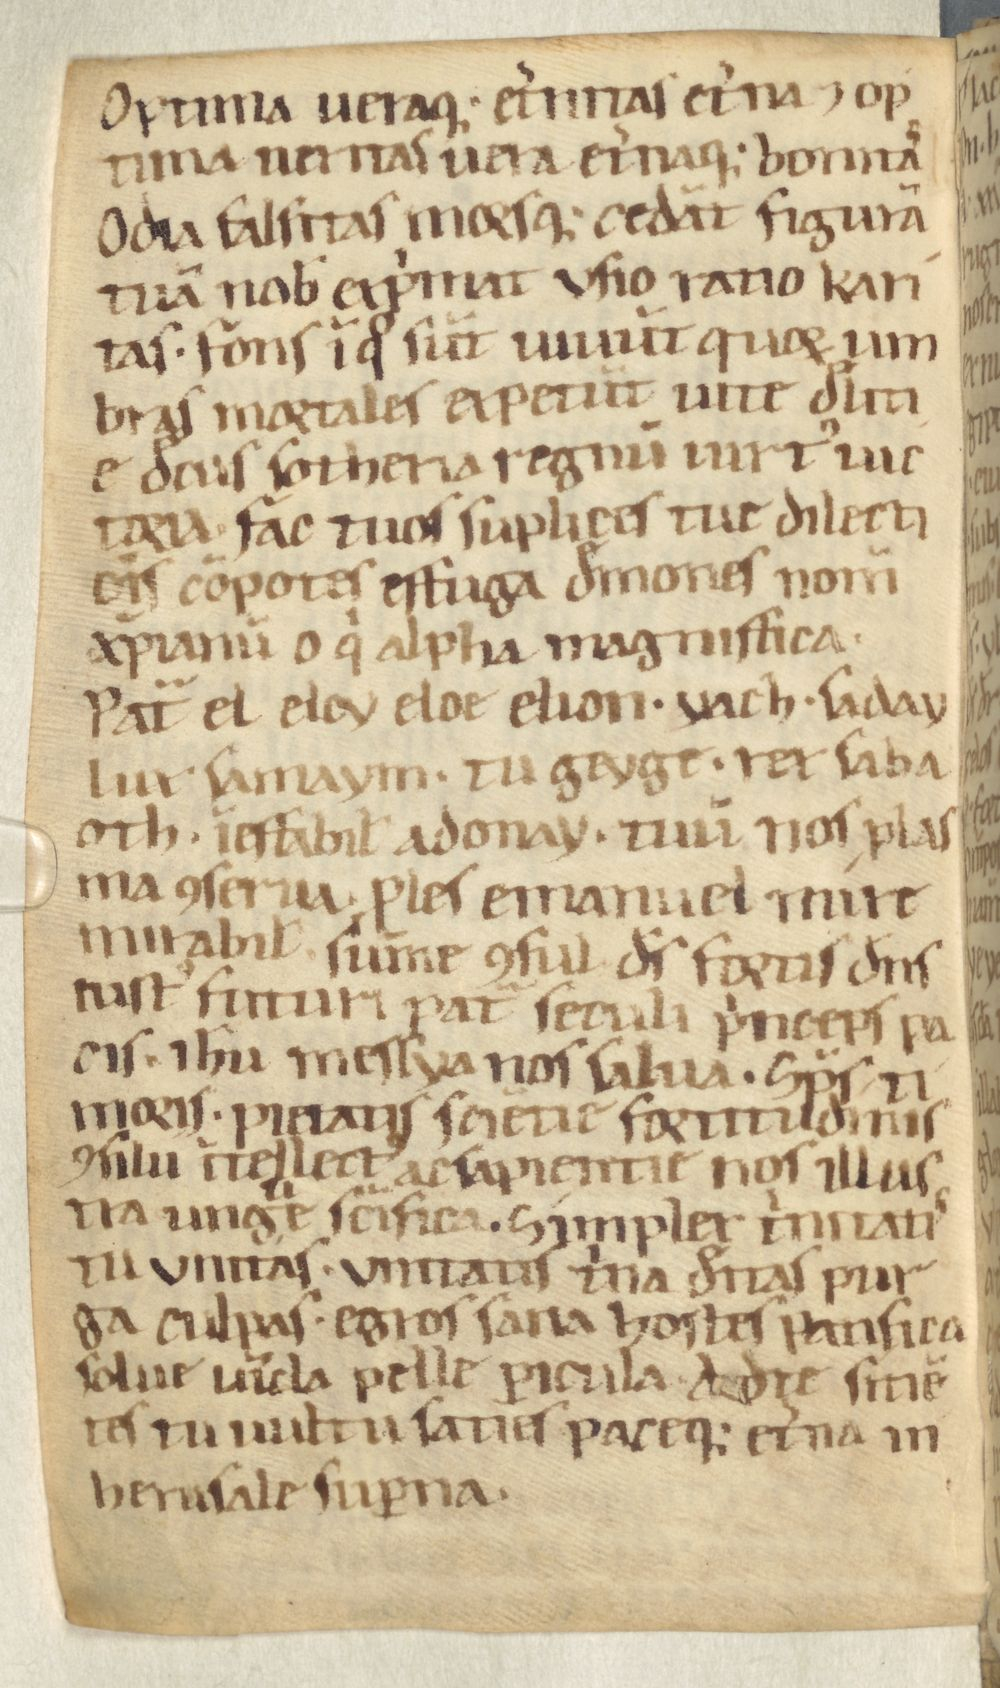 Optima ueraq; et̾nitas et̾na ⁊ op
tima ueritas uera et̾naq; bonitas
Odia falsitas morsq; cedāt figurā
tuā nob̄ exp̾mat Visio ratio kari
tas. fons ī q° sūt uiuūt quor um
bras mortales expetūt uite diuiti
e decus sotheria regnū uirt᷒ uic
toria. fac tuos suplices tue dilecti
onis cōpotes effuga demones nom̄
xp̄ianū o q̾ alpha magniffica.
Pat̄ el eloy eloe elion. yach. saday
lux samaym. tu geyge. rex saba
oth. ieffabil̄ adonay. tuū nos plas
ma ꝯserua. ples emanuel mire
mirabil̄. sūme ꝯsul ds̄ fortis dn̄s
iust᷒ futuri pat̄ seculi p̾nceps pa
cis. ihū messya nos salua. Sp̄s ti
moris. pietatis sciētie fortitudinis
ꝯsilii ītellect᷒ ac sapientie nos illus
tra unge sc̄ifica. Simplex t̾nitatis
tu Vnitas. Vnitatis t̾na deitas pur
ga culpas. egros sana hostes pansica
solue uīcla pelle picula. sitiē
tes tu uultu saties paceq; et̾na in
herusale supna.